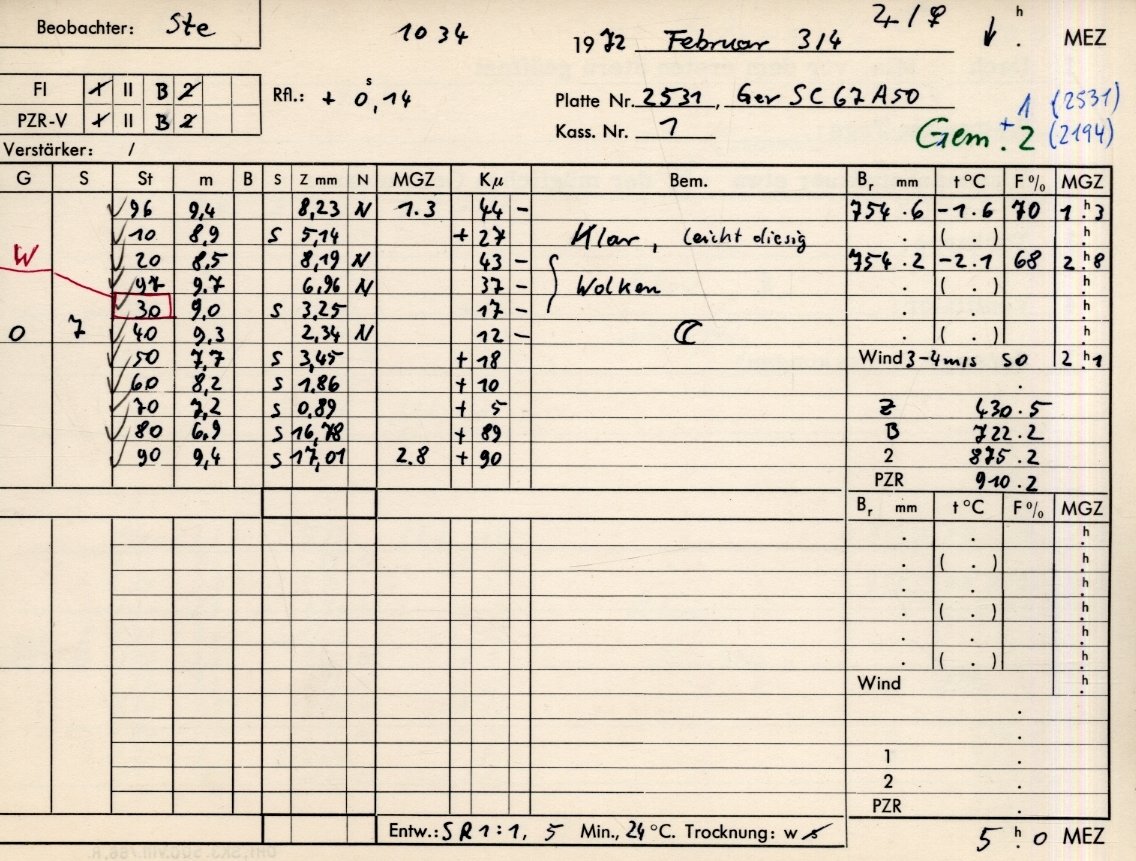 Beobachter: Ste
1034
1972 Februar 3/4
24/♀
h
. MEZ
FI + II B 2
PZR-V + II B 2
Verstärker: /
Rfl.: + 0,14 s
Platte Nr. 2531, Gev SC 67 A50
Kass. Nr. 1
1 (2531)
Gem + 2 (2194)
G S St m B S Z mm N MGZ Kµ Bem. Br mm t°C F% MGZ
96 9,4 8,23 N 1.3 44 - 754.6 -1.6 70 1 h 3
10 8,9 S 5,14 + 27 Klar, leicht diesig . ( . ) h
W 20 8,5 8,19 N 43 - 754.2 -2.1 68 2 h 8
97 9,7 6,96 N 37 - Wolken . ( . ) h
30 9,0 S 3,25 17 - . . h
0 7 40 9,3 2,34 N 12 - ☾ . ( . ) h
50 7,7 S 3,45 + 18 Wind 3-4 m/s SO 2 h 1
60 8,2 S 1,86 + 10 .
70 7,2 S 0,89 + 5 Z 430.5
80 6,9 S 16,78 + 89 B 722.2
90 9,4 S 17,01 2.8 + 90 2 875.2
PZR 910.2
Br mm t°C F% MGZ
. . h
. ( . ) h
. . h
. ( . ) h
. . h
. ( . ) h
Wind h
.
.
1 .
2 .
PZR .
Entw.: SR 1:1, 5 Min., 24 °C. Trocknung: w s
5 h 0 MEZ